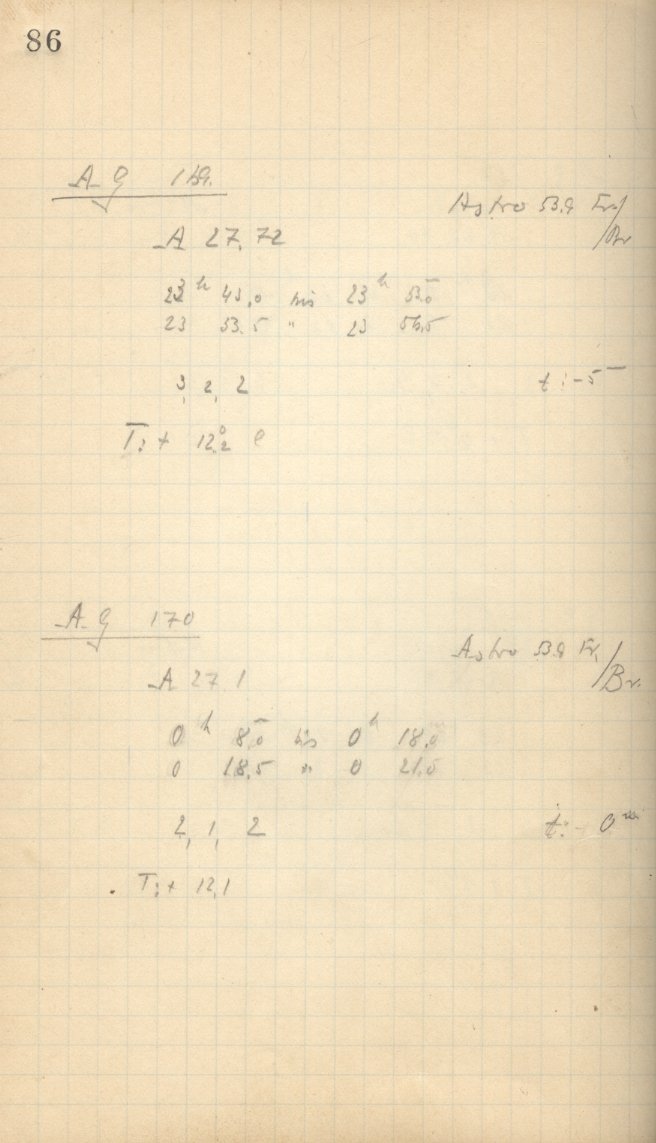 86
A G 169.
Astro 53.9 Fr/
Br
A 27.72
23 h 43,0 bis 23 h 53,0
23 53.5 " 23 56,5
3, 2, 2
t: -5
T: + 12,2
A G 170
Astro 53.9 Fr.
/Br.
A 27 1
0 h 8,0 bis 0 h 18,0
0 18,5 " 0 21,5
2, 1, 2
t: - 0 m
T: + 12,1